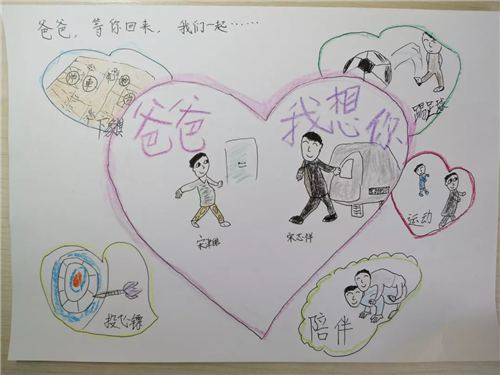 爸爸，等你回来，我们一起……
爸爸
我想你
下象棋
踢足球
运动
投飞镖
陪伴